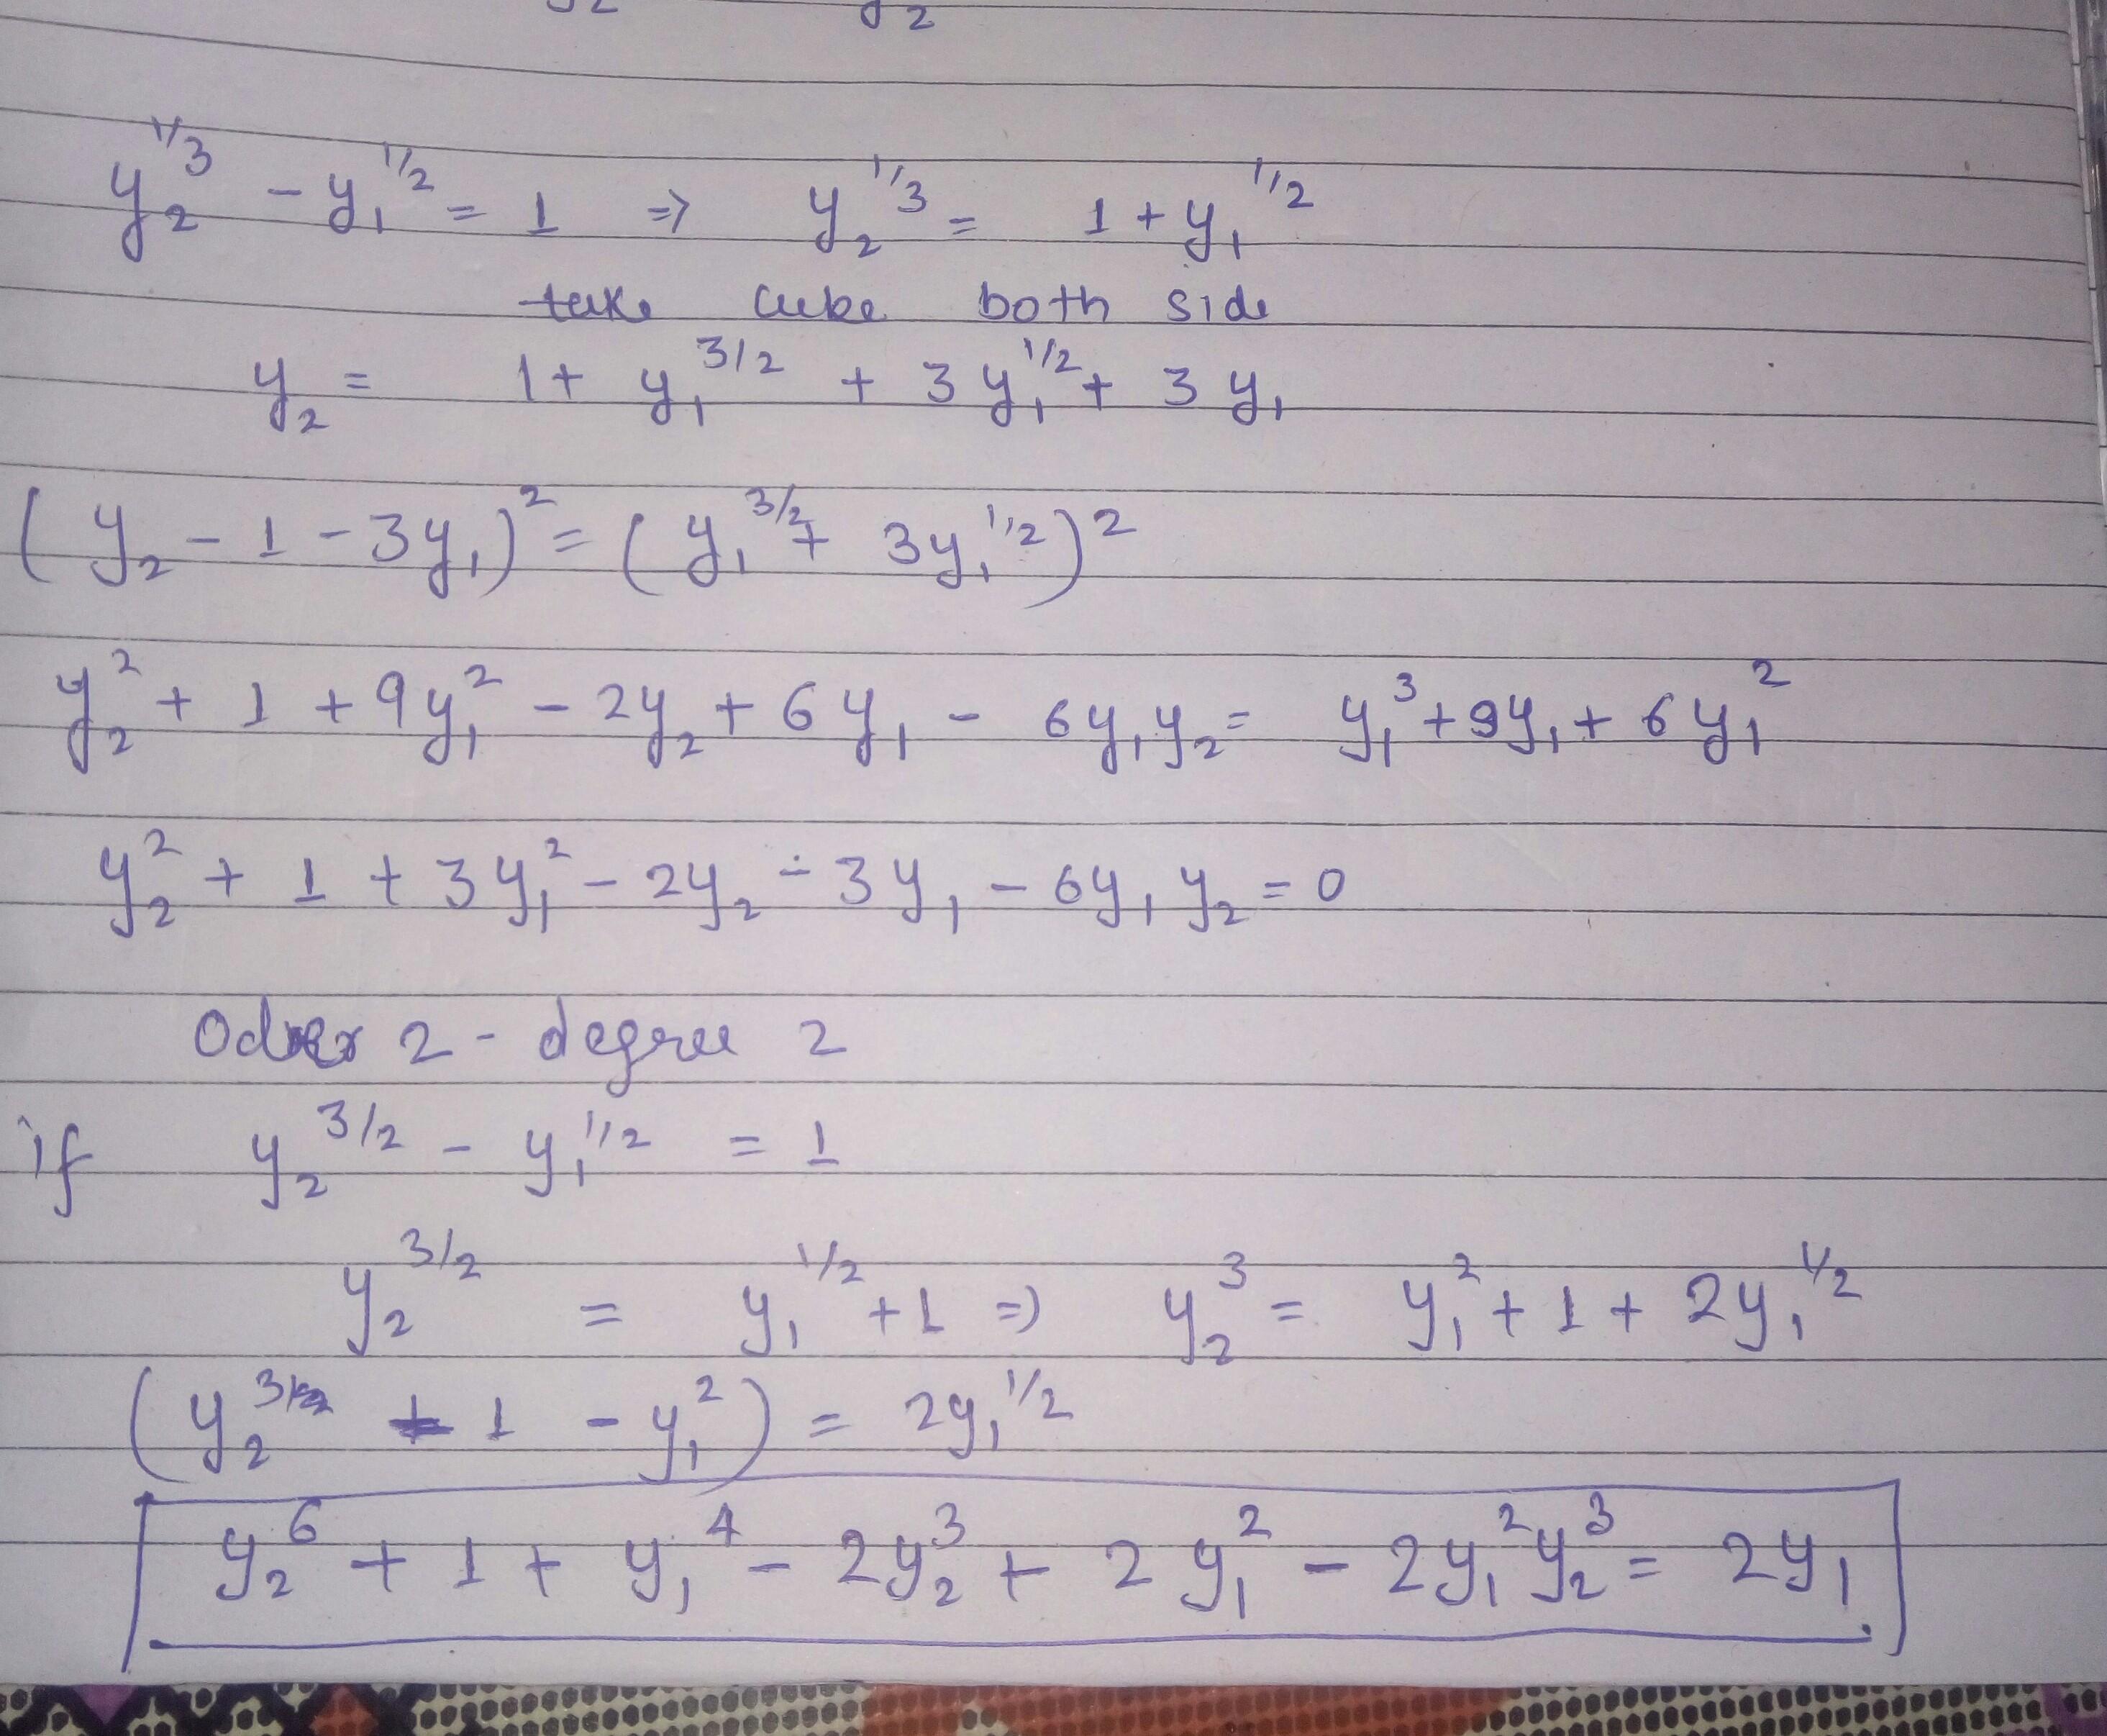 y₂^1/3 - y₁^1/2 = 1 ⇒ y₂^1/3 = 1 + y₁^1/2
take cube both side
y₂ = 1 + y₁^3/2 + 3y₁^1/2 + 3y₁
(y₂ - 1 - 3y₁)² = (y₁^3/2 + 3y₁^1/2)²
y₂² + 1 + 9y₁² - 2y₂ + 6y₁ - 6y₁y₂ = y₁³ + 9y₁ + 6y₁²
y₂² + 1 + 3y₁² - 2y₂ - 3y₁ - 6y₁y₂ = 0
Oder 2 - degree 2
if y₂^3/2 - y₁^1/2 = 1
y₂^3/2 = y₁^1/2 + 1 ⇒ y₂³ = y₁² + 1 + 2y₁^1/2
(y₂³ - 1 - y₁²) = 2y₁^1/2
y₂⁶ + 1 + y₁⁴ - 2y₂³ + 2y₁² - 2y₁²y₂³ = 2y₁